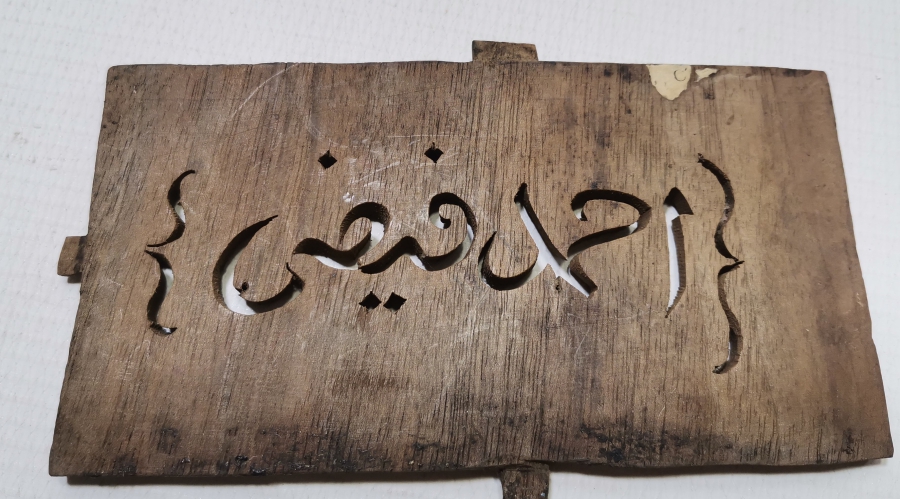 { احمد فيض }